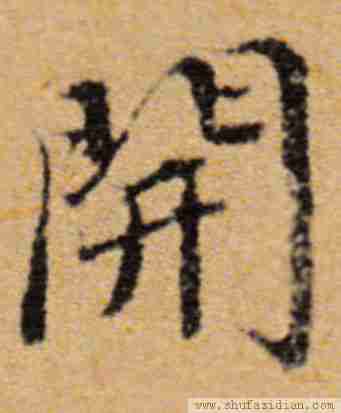 開
www.shufazidian.com